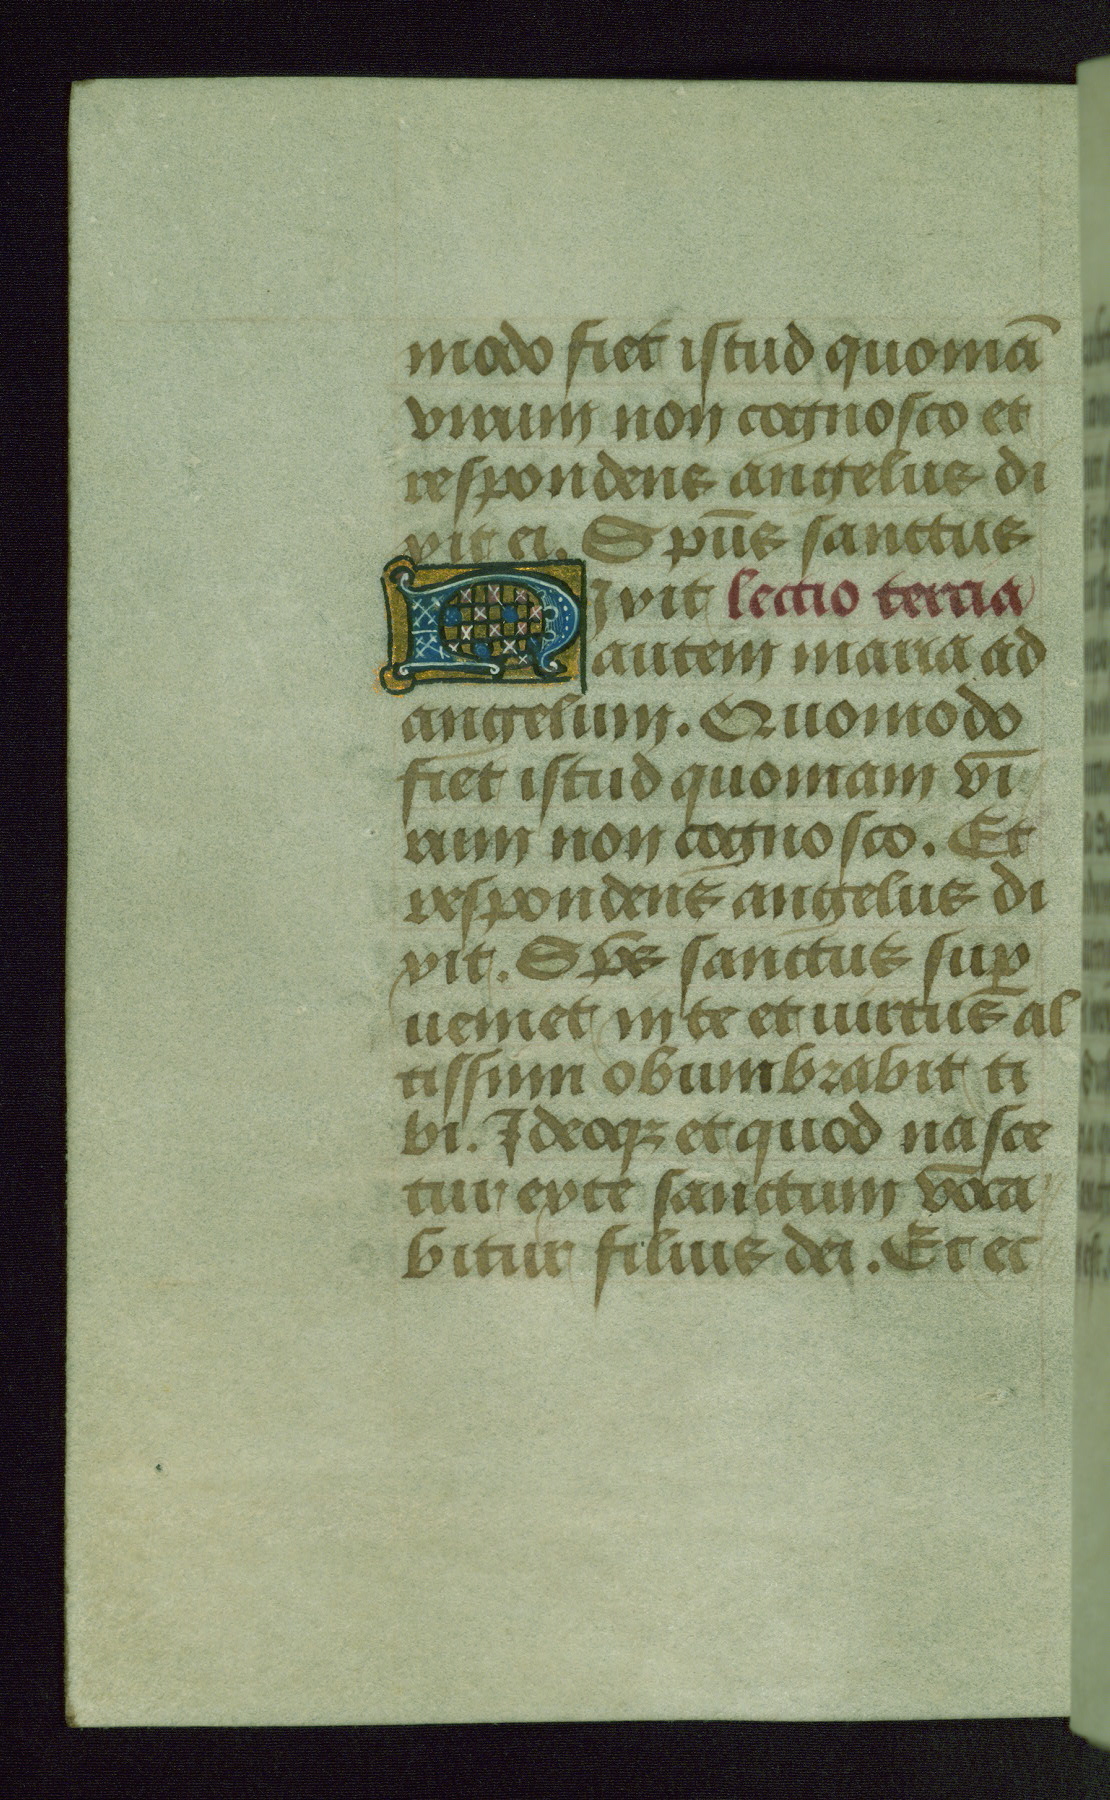 modo fiet istud quoniā
virum non cognosco et
respondens angelus di
xit ei. Spūs sanctus
Dixit lectio tercia
autem maria ad
angelum. Quomodo
fiet istud quoniam vi
rum non cognosco. Et
respondens angelus di
xit. Sps sanctus sup
ueniet in te et uirtus al
tissimi obumbrabit ti
bi. Ideoqz et quod nasce
tur ex te sanctum voca
bitur filius dei. Et ec